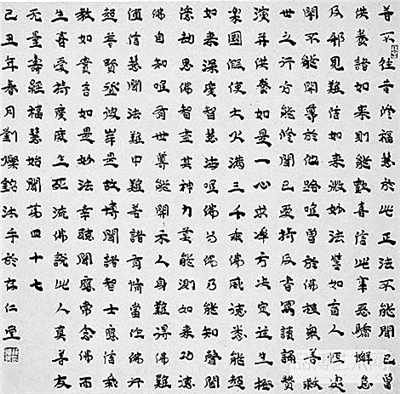 若不往昔修福慧於此正法不能聞已曾
供養諸如來則能歡喜信此事惡驕懈怠
及邪見難信如來微妙法譬如盲人恆處
闇不能開導於他路唯曾於佛植眾善救
世之行方能修聞已受持及書寫讀誦讚
演并供養如是一心求淨方決定往生極
樂國假使大火滿三千乘佛威德悉能超
如來深廣智慧海唯佛與佛乃能知聲聞
億劫思佛智盡其神力莫能測如來功德
佛自知唯有世尊能開示人身難得佛難
值信慧聞法難中難若諸有情當作佛行
超普賢登彼岸是故博聞諸智士應信我
教如實言如是妙法幸聽聞應常念佛而
生喜受持廣度生死流佛說此人真善友
无量壽經福慧始聞第四十七
己丑年春月劉燦銘沐手於存仁堂